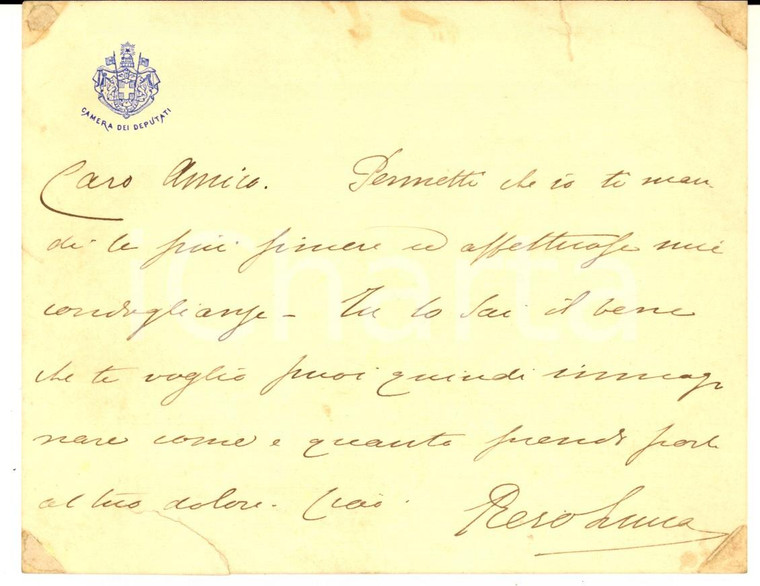 CAMERA DEI DEPUTATI
Caro Amico. Permetti che io ti man
di le più sincere ed affettuose mie
condoglianze – Tu lo sai il bene
che ti voglio puoi quindi immagi
nare come e quanto prendo parte
al tuo dolore. Ciao.
Piero Lucca
iCharta